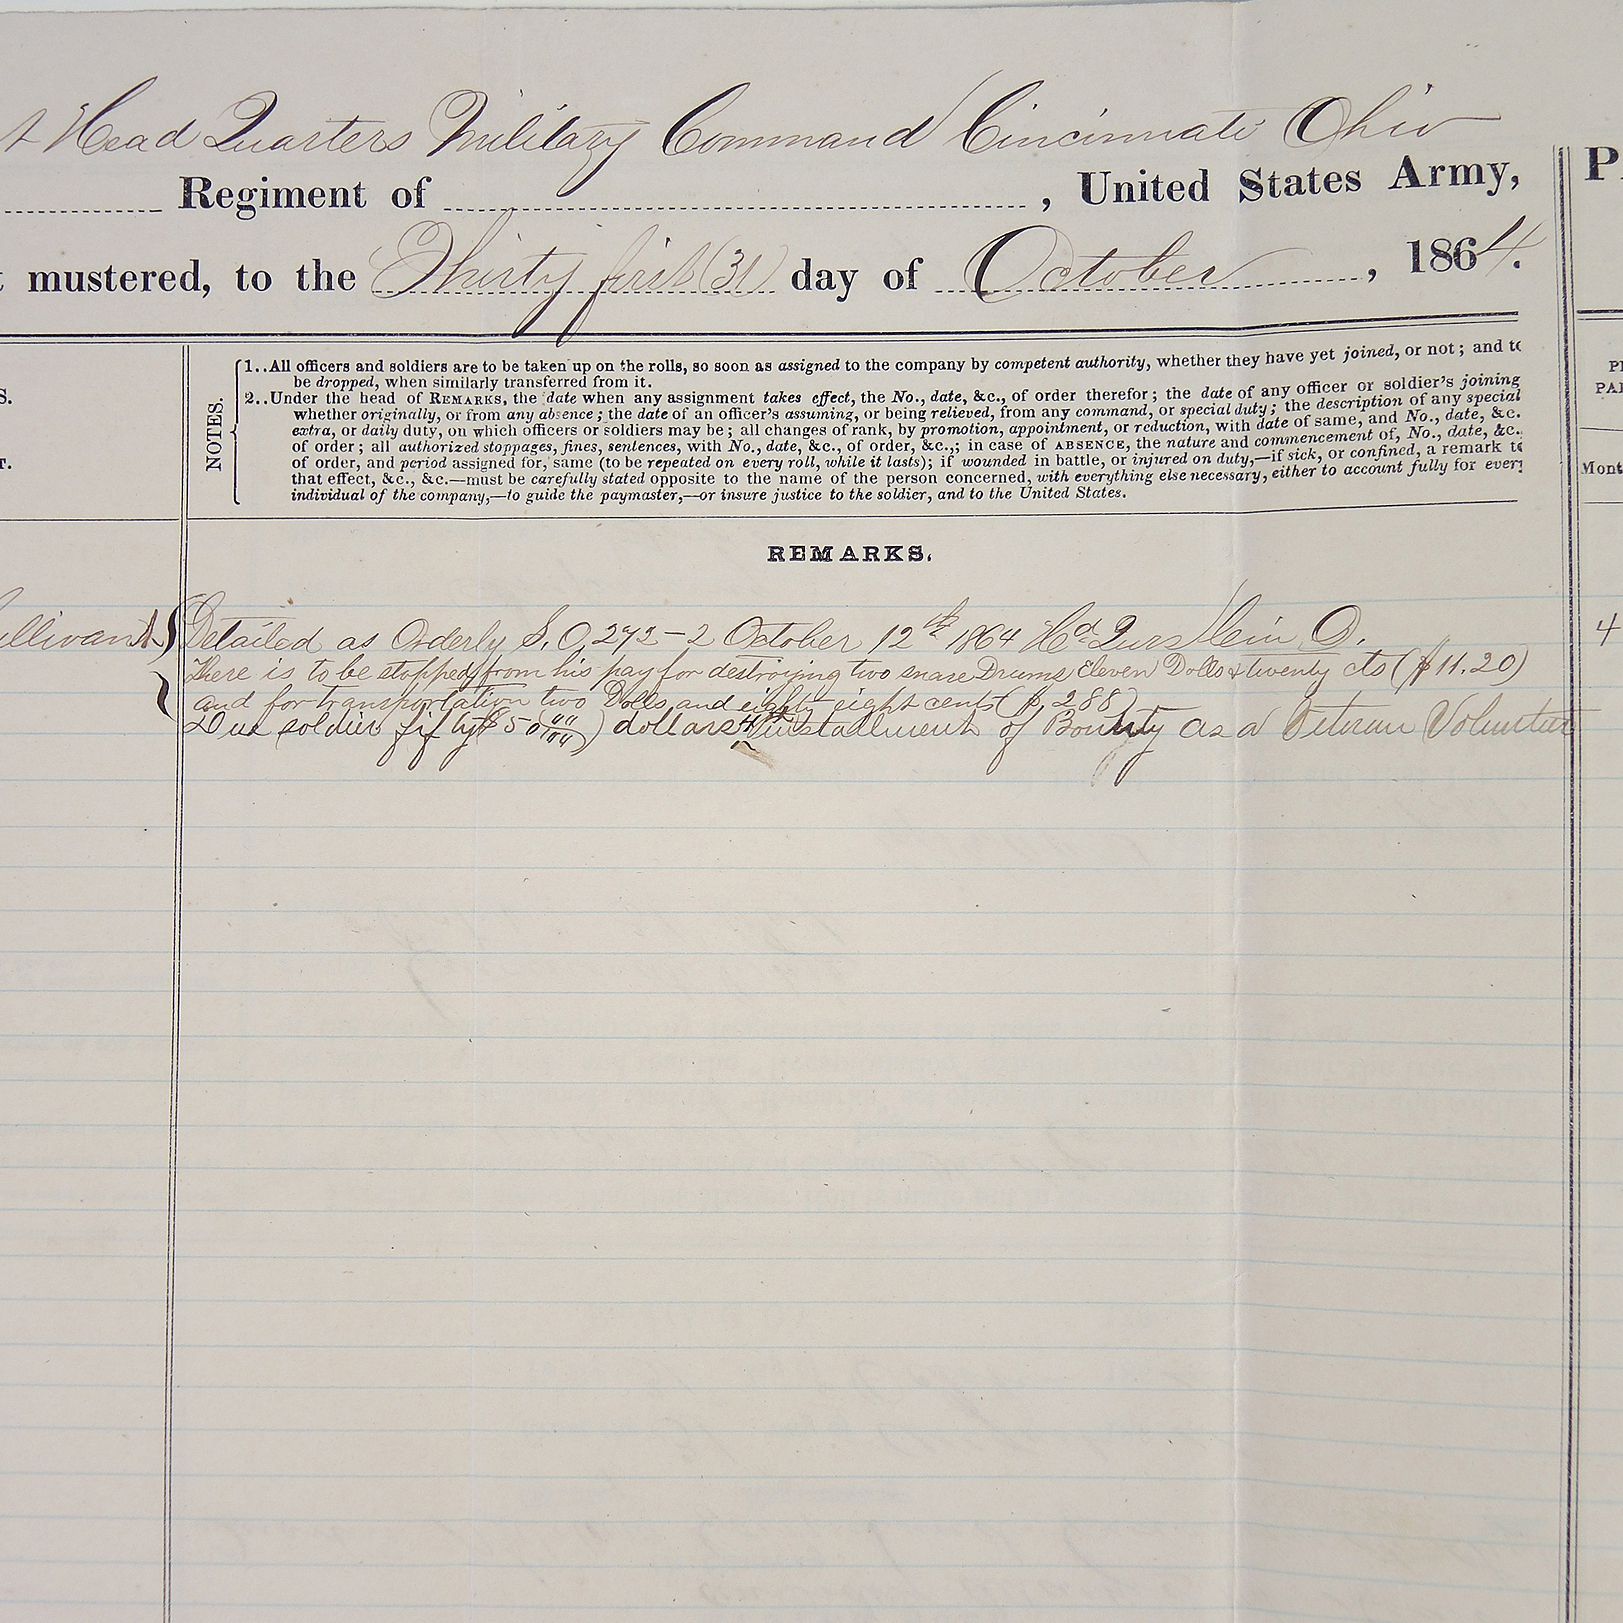 t Head Quarters Military Command Cincinnati Ohio
Regiment of , United States Army,
t mustered, to the Thirty first (31) day of October, 1864.
P
NOTES.
1..All officers and soldiers are to be taken up on the rolls, so soon as assigned to the company by competent authority, whether they have yet joined, or not; and to
be dropped, when similarly transferred from it.
2..Under the head of REMARKS, the date when any assignment takes effect, the No., date, &c., of order therefor; the date of any officer or soldier's joining
whether originally, or from any absence; the date of an officer's assuming, or being relieved, from any command, or special duty; the description of any special
extra, or daily duty, on which officers or soldiers may be; all changes of rank, by promotion, appointment, or reduction, with date of same, and No., date, &c.
of order; all authorized stoppages, fines, sentences, with No., date, &c., of order, &c.,; in case of ABSENCE, the nature and commencement of, No., date, &c.,
of order, and period assigned for, same (to be repeated on every roll, while it lasts); if wounded in battle, or injured on duty,—if sick, or confined, a remark to
that effect, &c., &c.—must be carefully stated opposite to the name of the person concerned, with everything else necessary, either to account fully for every
individual of the company,—to guide the paymaster,—or insure justice to the soldier, and to the United States.
S.
T.
PAI
Mont
REMARKS.
ullivant Detailed as Orderly S. O. 272-2 October 12th 1864 Hd Qurs Cin O.
4
There is to be stopped from his pay for destroying two snare Drums Eleven Dolls & twenty cts ($11.20)
and for transportation two Dolls, and eighty eight cents ($2.88)
Due soldier fifty ($50 00/100) dollars installment of Bounty as a Veteran Volunteer